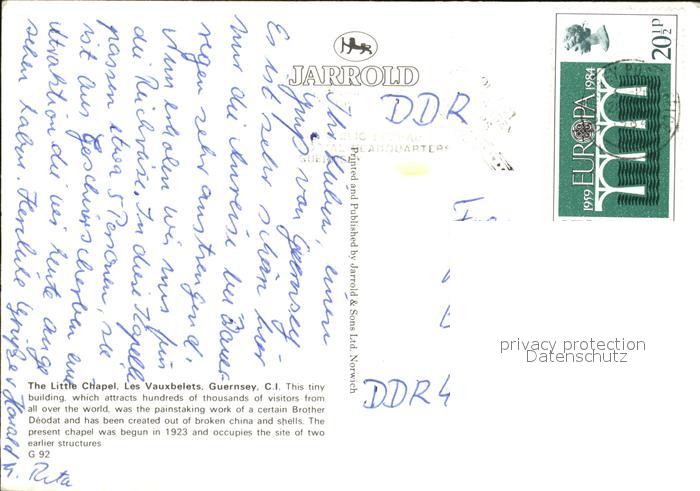 JARROLD
Ihr Lieben, einen
Gruß von Guernsey –
Es ist sehr schön hier
nur die Anreise bei Dauer-
regen sehr anstrengend.
Nun erholen wir uns für
die Rückreise. In diese Kapelle
passen etwa 5 Personen, sie
ist aus Geschirrscherben eine
Attraktion die wir heute ange
sehen haben. Herzliche Grüße
Harald u. Rita
DDR
DDR 4
HEADQUARTERS
Printed and Published by Jarrold & Sons Ltd. Norwich
1959 EUROPA 1984
20½P
privacy protection
Datenschutz
The Little Chapel, Les Vauxbelets, Guernsey, C.I. This tiny
building, which attracts hundreds of thousands of visitors from
all over the world, was the painstaking work of a certain Brother
Déodat and has been created out of broken china and shells. The
present chapel was begun in 1923 and occupies the site of two
earlier structures
G 92